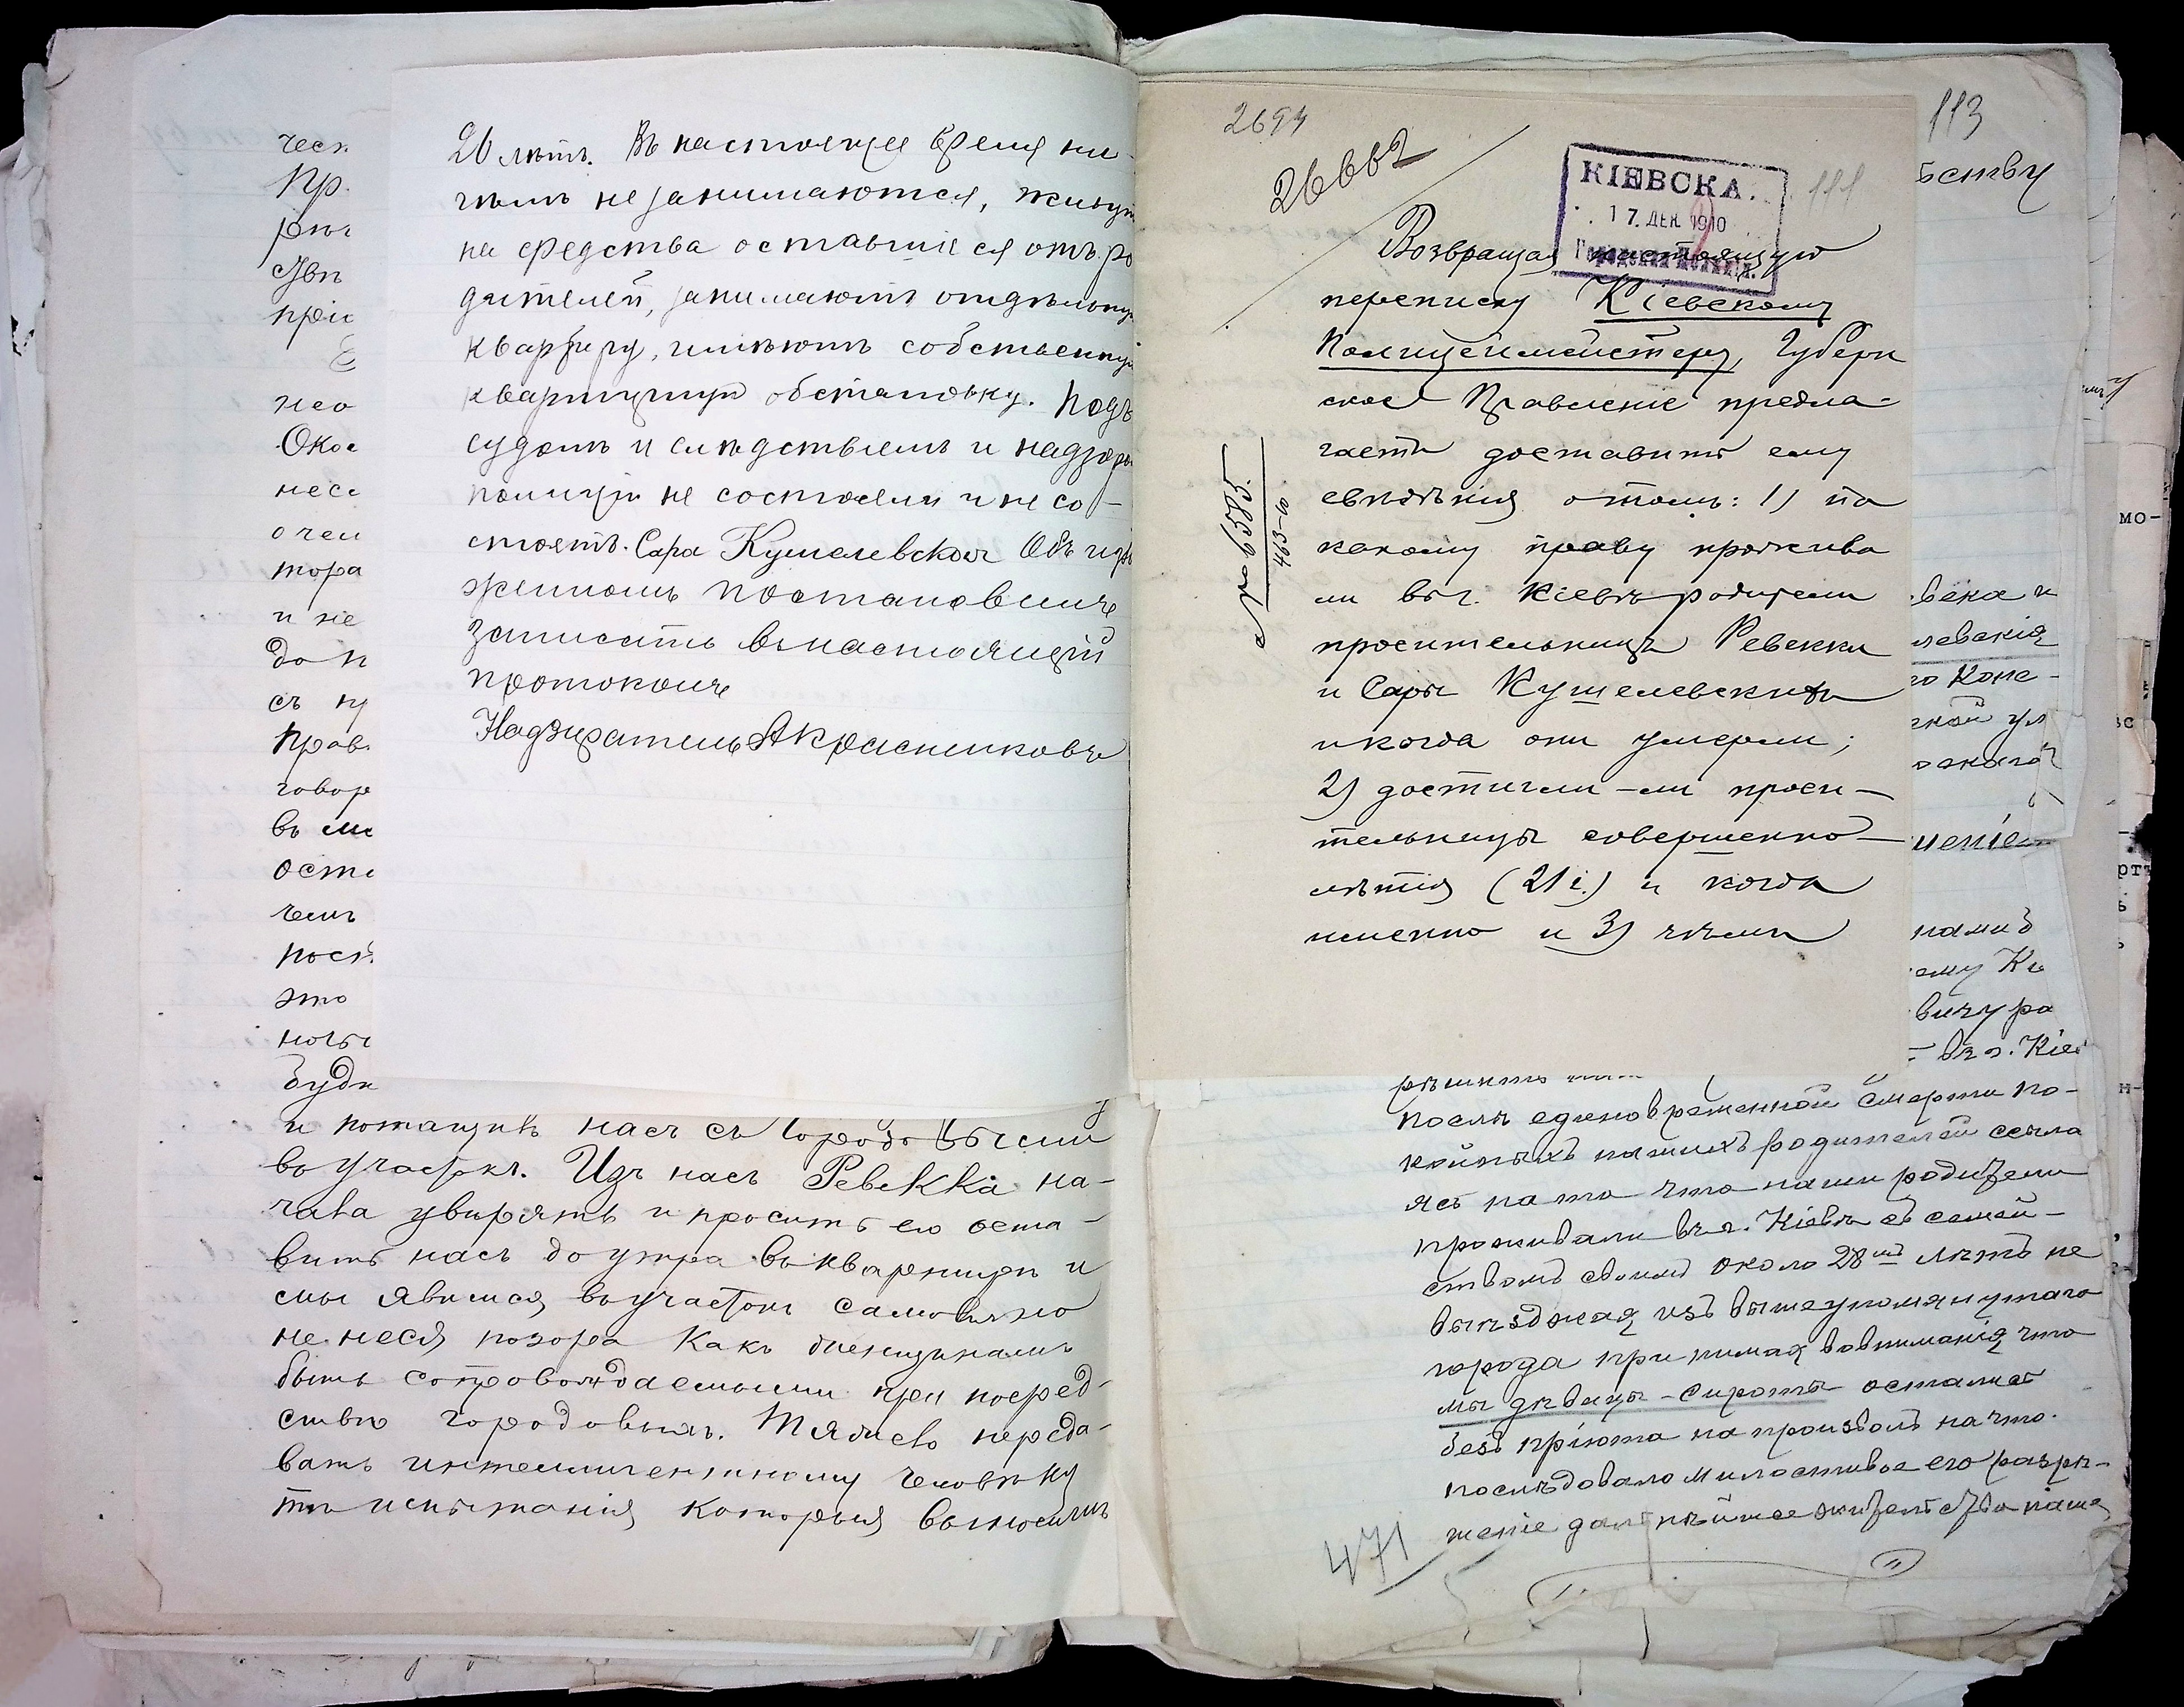 чест
Пр.
рѣч
Увѣ
прис
нео
Окос
несе
очен
тора
и не
до н
съ ку
Прав.
говор
въ ми
оста
чемъ
посл
это
ночы
Будк
26 лѣтъ. Въ настоящее время ни-
чѣмъ не занимаются, живутъ
на средства оставшіеся отъ ро
дителей, занимаютъ отдѣльную
квартиру, имѣютъ собственную
квартирную обстановку. Подъ
судомъ и слѣдствіемъ и надзоромъ
полиціи не состояли и не со-
стоятъ. Сара Кушелевская Объ изло
женномъ постановилъ
записать въ настоящій
протоколъ
Надзиратель А Красниковъ
и потащивъ насъ съ городовыми
въ участокъ. Изъ насъ Ревекка на-
чала увѣрять и просить его оста-
вить насъ до утра въ квартирѣ и
мы явимся въ участокъ самовльно
не неся позора какъ женщинамъ
быть сопровождаемыми при посред-
ствѣ городовыхъ. Тяжело переда-
вать интеллигентному человѣку
тѣ испытанія которыя выносимъ
2694
26662
113
111
КІЕВСКА.
17. ДЕК 1910
Городская Полиція.
№ 6585
463-ю
Возвращая настоящую
переписку Кіевскому
Полицеймейстеру, Губерн
ское Правленіе предла-
гаетъ доставить ему
свѣдѣнія о томъ: 1) по
какому праву прожива
ли въ г. Кіевѣ родители
просительницъ Ревекки
и Сары Кушелевскихъ
и когда они умерли;
2) достигли-ли проси-
тельницы совершенно-
лѣтія (21 г.) и когда
именно и 3) чѣмъ
ству
века и
левскія
го Коне-
ской ул
нами
ему Ки
вичу ра
въ г. Кіев
послѣ единовременной смерти по-
койныхъ нашихъ родителей ссыла
ясь на то что наши родители
проживали въ г. Кіевѣ съ семей-
ствомъ своимъ около 28ми лѣтъ не
выѣзжая изъ вышеупомянутаго
города принимая во вниманія что
мы дѣвицы-сироты остались
безъ пріюта на произволъ на что.
послѣдовало милостивое его разрѣ-
шеніе дальнѣйшее жительство наше
471
мо-